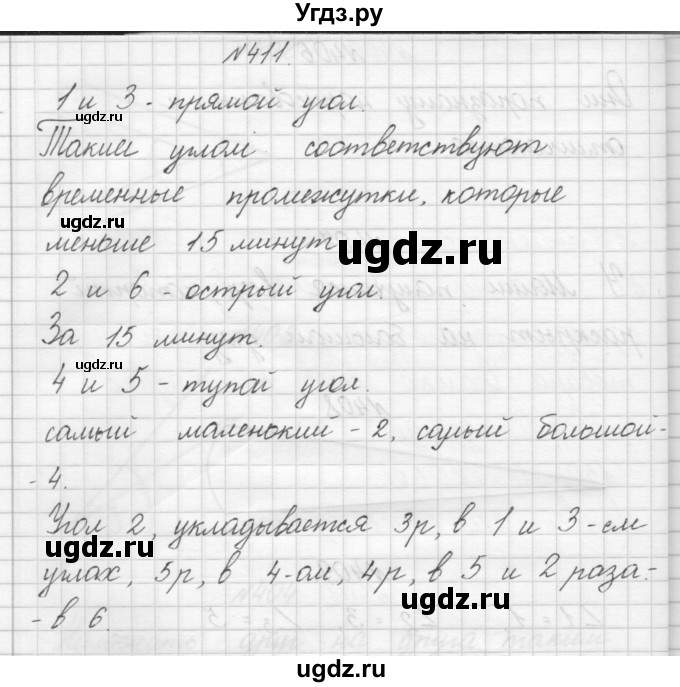 Угдз.ру
№411.
1 и 3 - прямой угол.
Такие углы соответствуют
временные промежутки, которые
меньше 15 минут
2 и 6 - острый угол.
За 15 минут.
4 и 5 - тупой угол.
самый маленький - 2, самый большой -
- 4.
Угол 2, укладывается 3р, в 1 и 3-ем
углах, 5р, в 4-ом, 4р, в 5 и 2 раза -
- в 6.
ugdz.ru
ugdz.ru
ugdz.ru
ugdz.ru
ugdz.ru
ugdz.ru
ugdz.ru
ugdz.ru
ugdz.ru
ugdz.ru
ugdz.ru